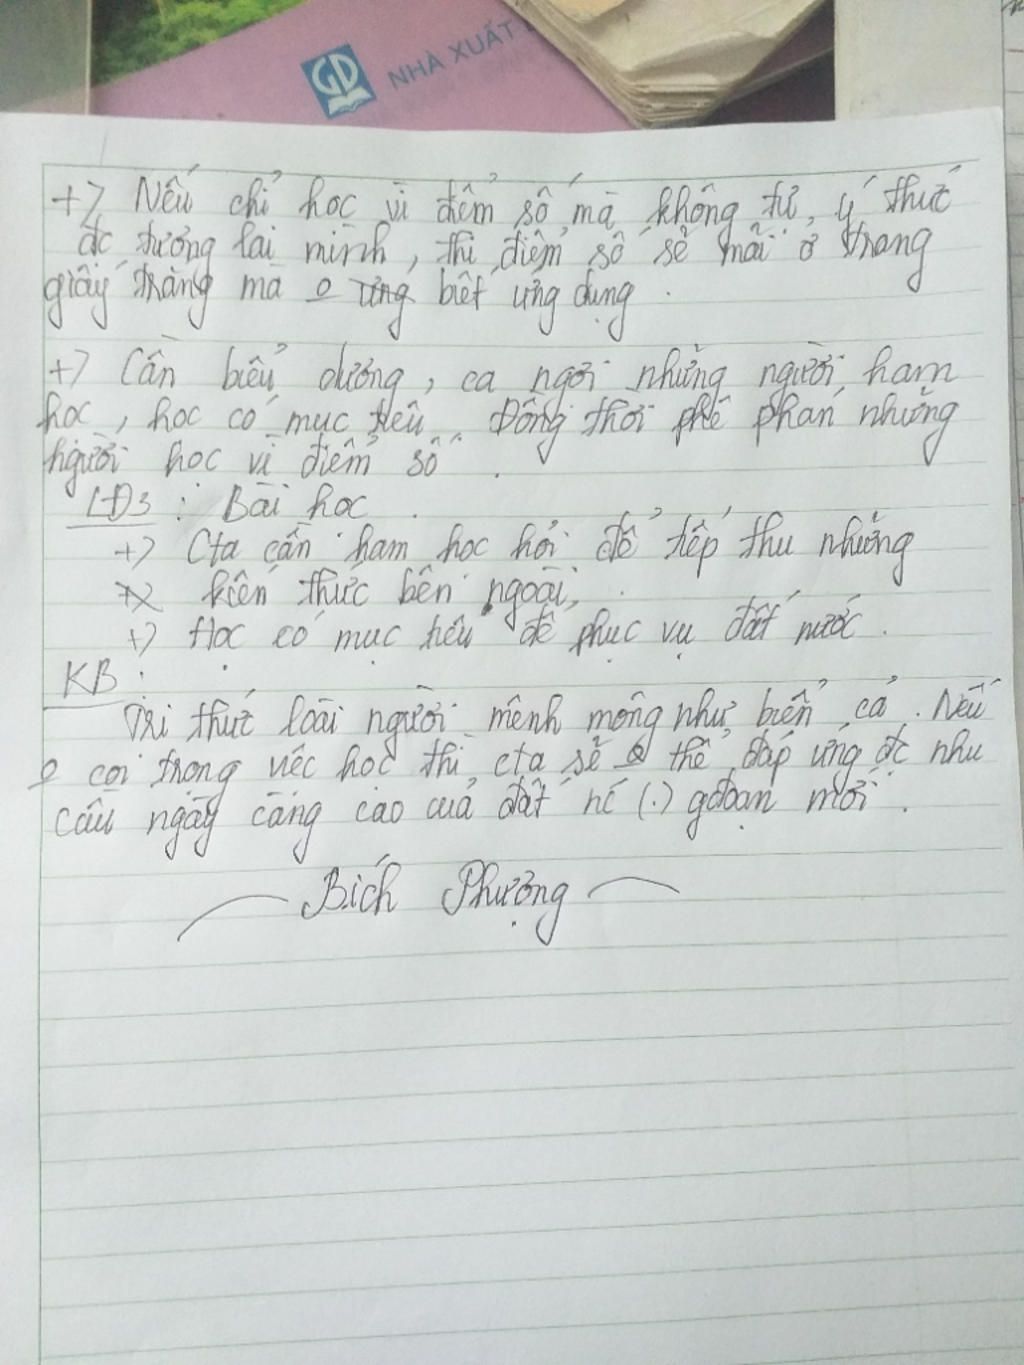 GD NHÀ XUẤT
+) Nếu chỉ học vì điểm số mà không tự ý thức
đc tương lai mình, thì điểm số sẽ mãi ở trang
giấy trắng mà o ứng biết ứng dụng.
+) Cần biểu dương, ca ngợi những người ham
học, học có mục tiêu. Đồng thời phê phán những
người học vì điểm số.
LĐ3: Bài học.
+) Cta cần ham học hỏi để tiếp thu những
kiến thức bên ngoài,
+) Học có mục tiêu để phục vụ đất nước.
KB:
Tri thức loài người mênh mông như biển cả. Nếu
o coi trọng việc học thì cta sẽ o thể đáp ứng đc nhu
cầu ngày càng cao của đất nc (.) gđoạn mới.
Bích Phượng